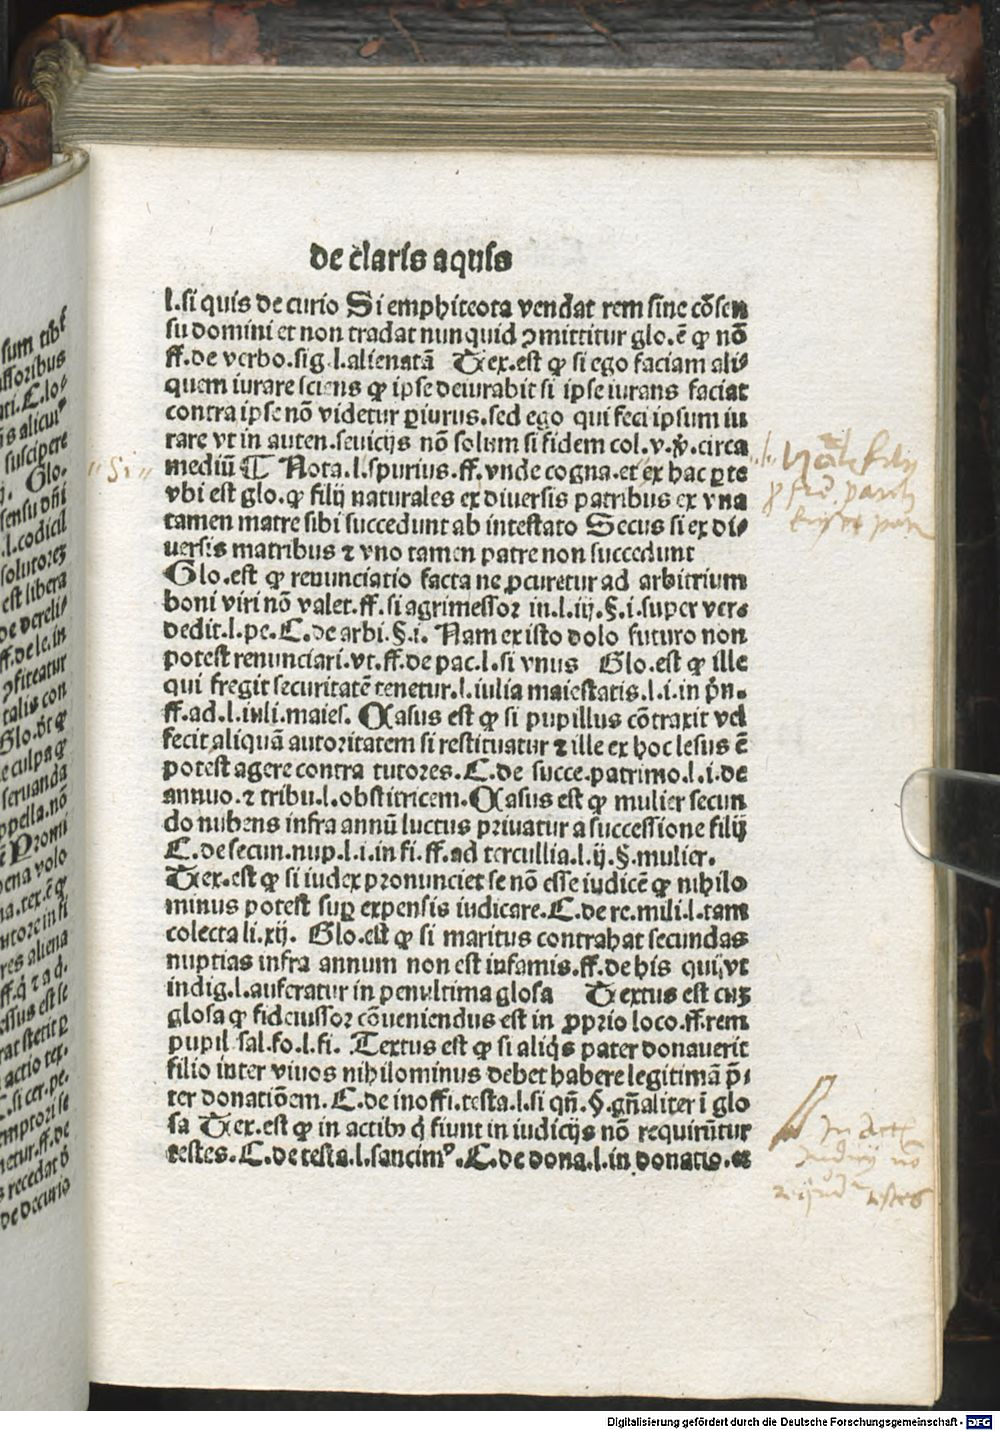 de claris aquis
l.si quis de curio Si emphiteota vendat rem sine cōsen
su domini et non tradat nunquid ꝯmittitur glo.ē ꝙ nō
ff.de verbo.sig.l.alienatā Tex.est ꝙ si ego faciam ali⸗
quem iurare sciens ꝙ ipse deiurabit si ipse iurans faciat
contra ipse nō videtur ꝑiurus.sed ego qui feci ipsum iu
rare vt in auten.seuicijs nō solum si fidem col.v.ꝟ.circa
mediū ¶ Nota.l.spurius.ff.vnde cogna.et ex hac ꝑte
vbi est glo.ꝙ filij naturales ex diuersis patribus ex vna
tamen matre sibi succedunt ab intestato Secus si ex di⸗
uersis matribus ⁊ vno tamen patre non succedunt
Glo.est ꝙ renunciatio facta ne ꝓcuretur ad arbitrium
boni viri nō valet.ff.si agrimessor in.l.iij.§.i.super ver⸗
dedit.l.pe.C.de arbi.§.i. Nam ex isto dolo futuro non
potest renunciari.vt.ff.de pac.l.si vnus Glo.est ꝙ ille
qui fregit securitatē tenetur.l.iulia maiestatis.l.i.in p̄n.
ff.ad.l.iuli.maies. Casus est ꝙ si pupillus cōtraxit vel
fecit aliquā autoritatem si restituatur ⁊ ille ex hoc lesus ē
potest agere contra tutores.C.de succe.patrimo.l.i.de
annuo.⁊ tribu.l.obstitricem.Casus est ꝙ mulier secun
do nubens infra annū luctus priuatur a successione filij
C.de secun.nup.l.i.in fi.ff.ad tercullia.l.ij.§.mulier.
Tex.est ꝙ si iudex pronunciet se nō esse iudicē ꝙ nihilo
minus potest suꝑ expensis iudicare.C.de re.mili.l.tam
colecta li.xij. Glo.est ꝙ si maritus contrahat secundas
nuptias infra annum non est infamis.ff.de his qui,vt
indig.l.auferatur in penultima glosa Textus est cuꝫ
glosa ꝙ fideiussor cōueniendus est in ꝓprio loco.ff.rem
pupil sal.fo.l.fi. Textus est ꝙ si aliq̄s pater donauerit
filio inter viuos nihilominus debet habere legitimā p̄⸗
ter donatiōem.C.de inoffi.testa.l.si qn̄.§.gn̄aliter ī glo
sa Tex.est ꝙ in actibꝰ q̄ fiunt in iudicijs nō requirūtur
testes.C.de testa.l.sancimꝰ.C.de dona.l.in donatio.et
"Si"
In Act
Judicij nō
testes
sum tib
ussoribus
C.lo⸗
s alicuiꝰ
suscipere
Glo.
sensu dn̄i
.l.codicil
solutoreꝫ
est libera
de dereli⸗
ff.de le.in
ꝯfiteatur
talis con
Glo.
e culpa ꝙ
seruanda
ppella.nō
Promi
pena volo
na.tex.ē ꝙ
utore in fi
res aliena
essus est se
rat stetit ꝑ
actio tex.
.si cer.pe.
emptori se
netur.ff.de
recedat
de decurio
Digitalisierung gefördert durch die Deutsche Forschungsgemeinschaft - DFG